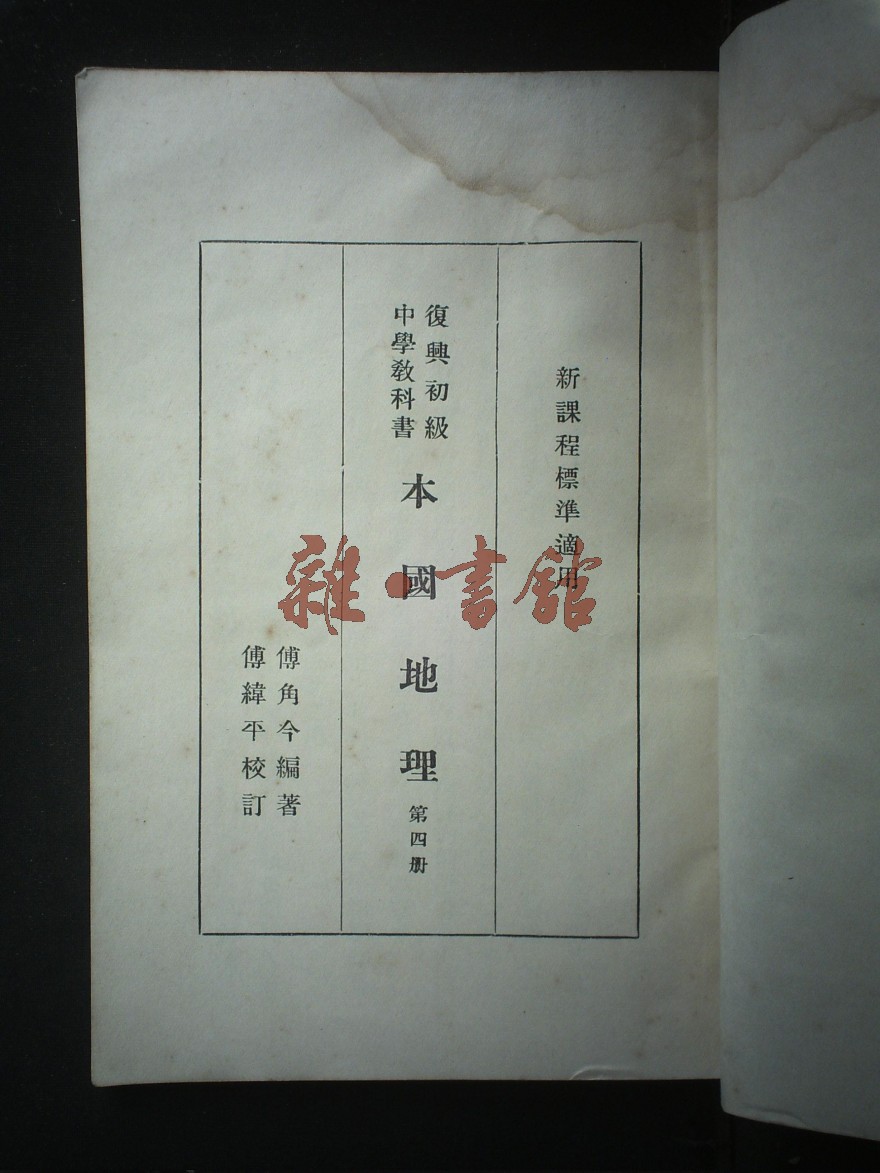 新課程標準適用
復興初級
中學教科書
本國地理
第四册
傅角今編著
傅緯平校訂
雜·書館